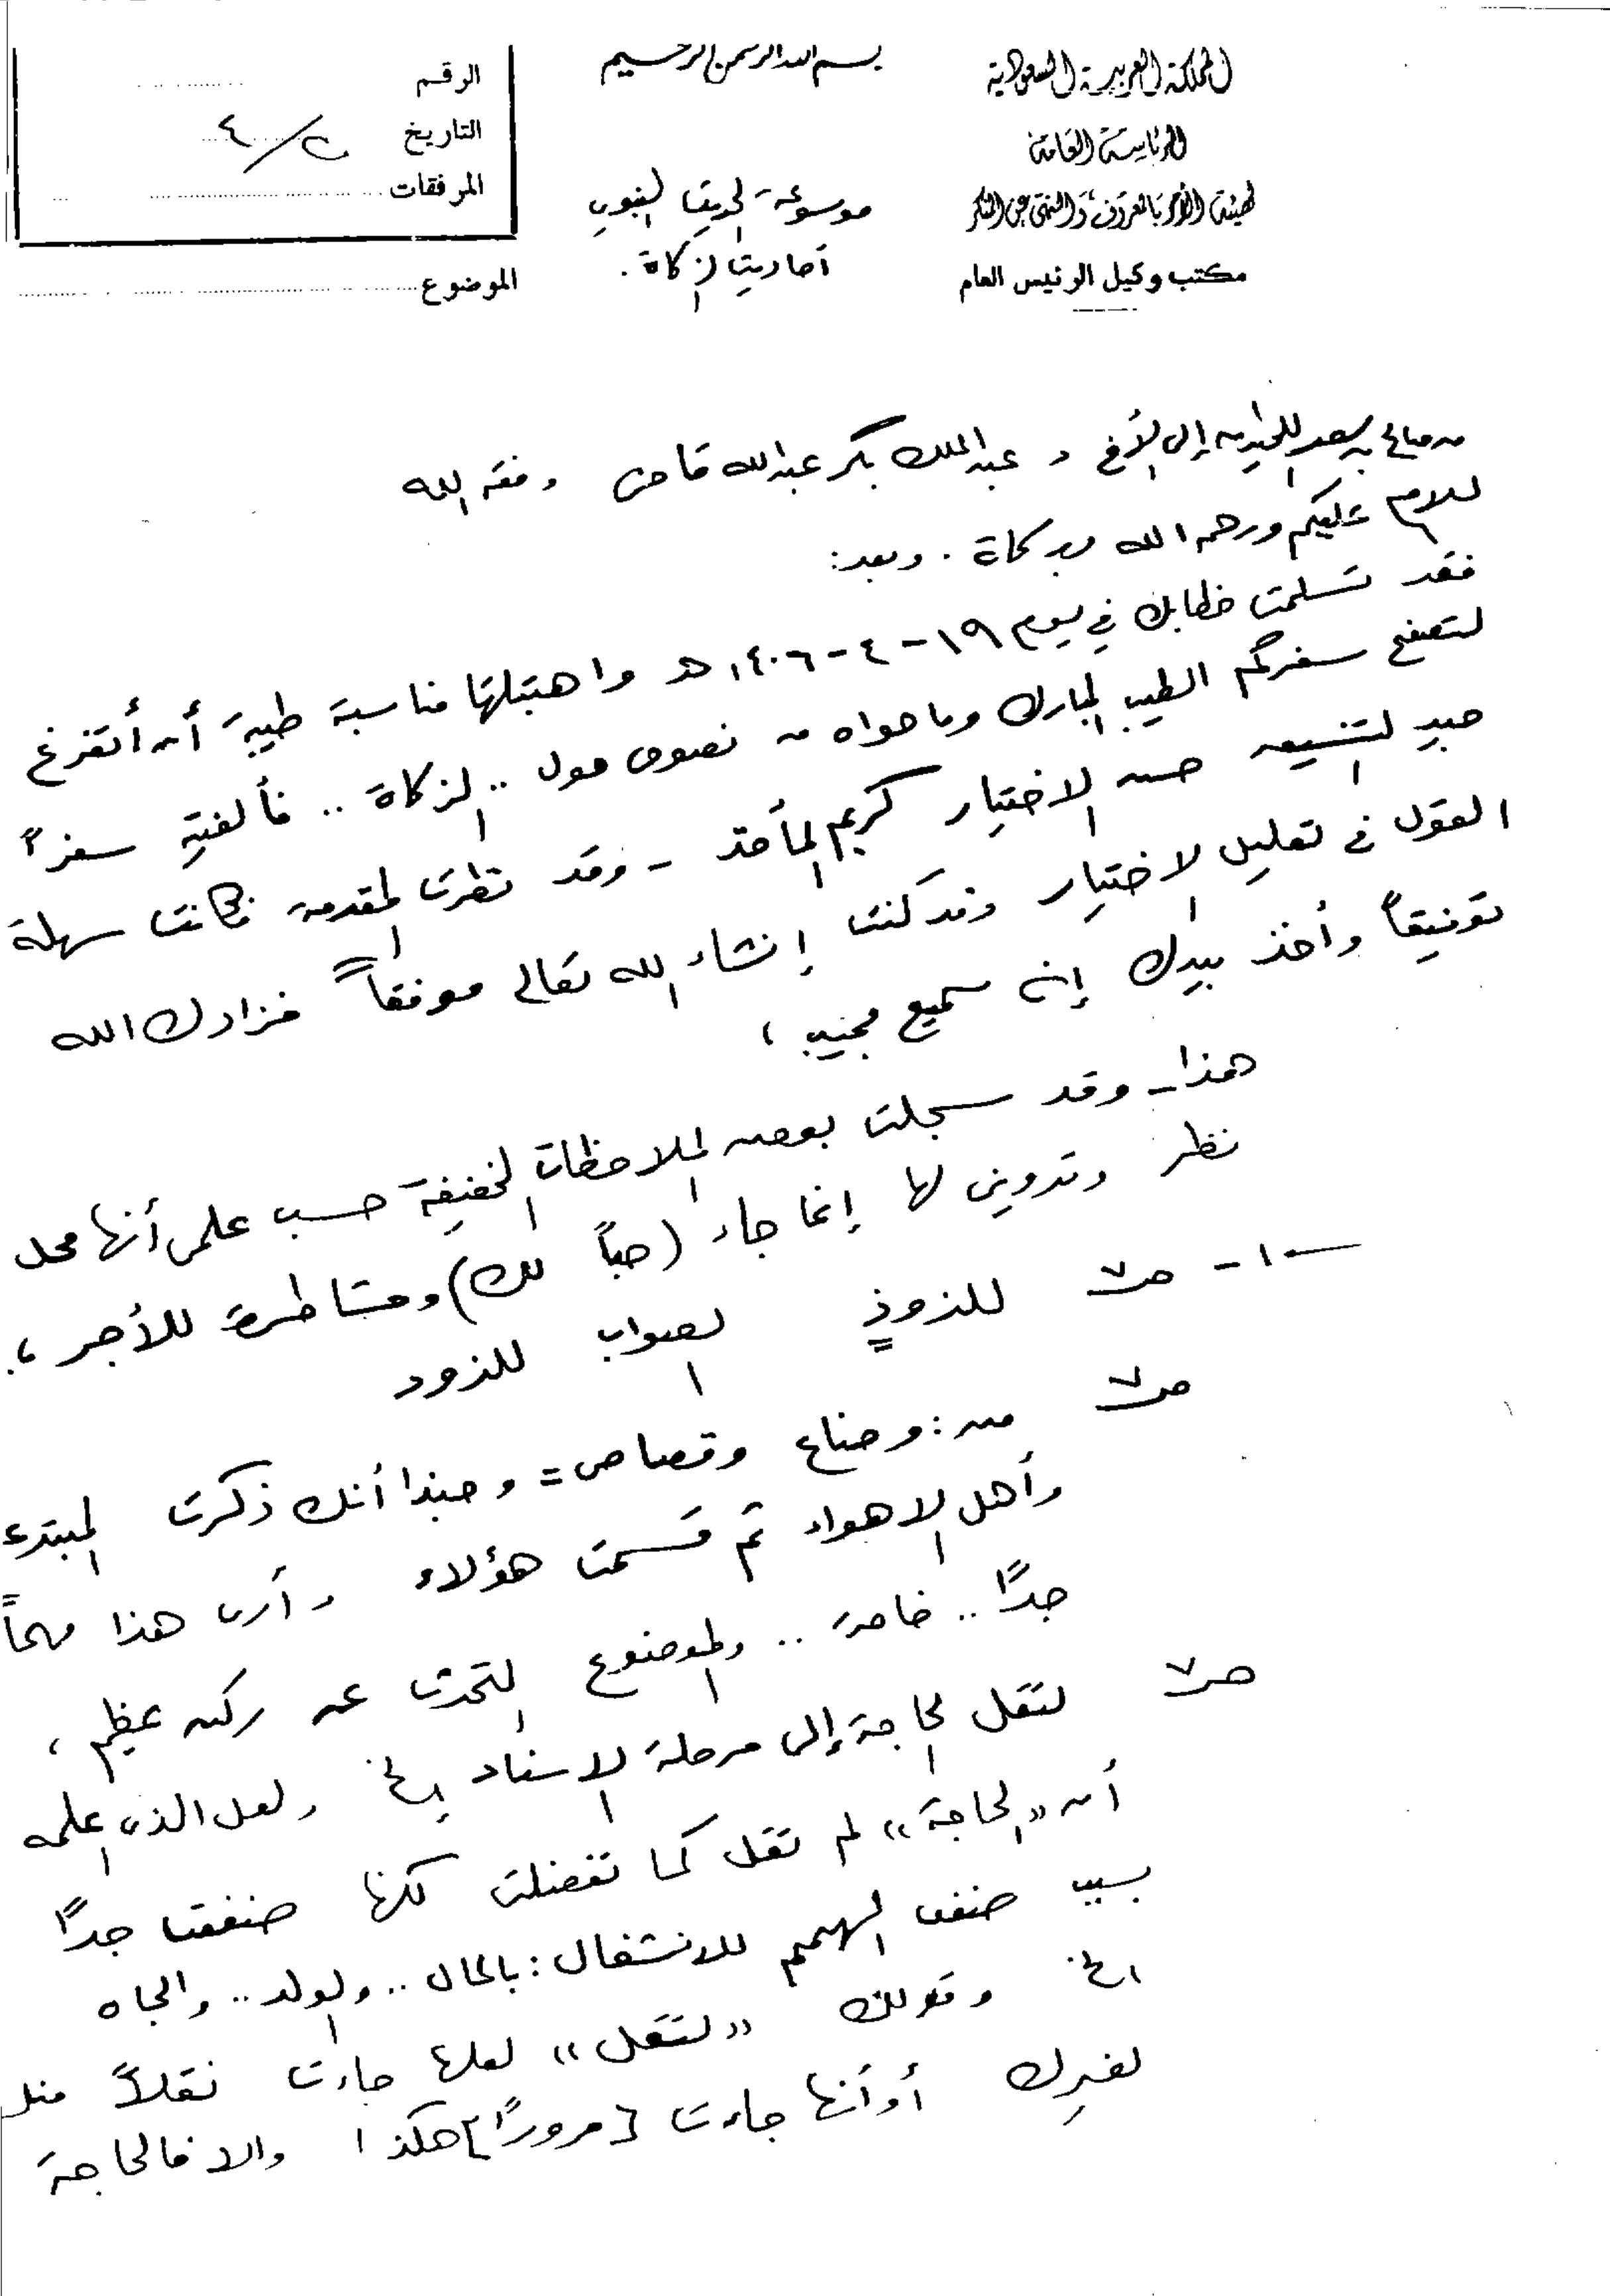 المملكة العربية السعودية
الرئاسة العامة
لهيئة الأمر بالمعروف والنهي عن المنكر
مكتب وكيل الرئيس العام
بسم الله الرحمن الرحيم
موسوعة الحديث النبوي
أحاديث الزكاة .
الرقم
التاريخ ٢/٤
المرفقات
الموضوع
من صالح بن سعد اللحيدان إلى الأخ د عبد الملك بكر عبد الله قاضي وفقه الله
السلام عليكم ورحمة الله وبركاته . وبعد :
فقد تسلمت خطابك في يوم ١٩-٤-١٤٠٦ هـ واهتبلتها مناسبة طيبة أن أتفرغ
لتصفح سفركم الطيب المبارك وما حواه من نصوص حول .. الزكاة .. فألفيته سفراً
جيد التنسيق حسن الاختيار كريم المأخذ - وقد نظرت المقدمة فكانت سهلة
القول في تعليل الاختيار وقد كنت إنشاء الله تعالى موفقاً فزادك الله
توفيقاً وأخذ بيدك إنه سميع مجيب ،
هذا - وقد سجلت بعض الملاحظات الخفيفة حسب علمي أنها محل
نظر وتدويني لها إنما جاء (حباً لك) ومشاطرة للأجر ،
-١- ص٧ للزوذ الصواب للزود
ص٧ من : وضاع وقصاص = وحبذا أنك ذكرت المبتدع
وأهل الاهواء ثم قسمت هؤلاء وأرى هذا مهماً
جداً .. خاصة .. والموضوع التحدث عن ركن عظيم ،
ص٧ لتقل الحاجة إلى مرحلة الاسناد إلخ ولعل الذي اعلمه
أن «الحاجة» لم تقل كما تفضلت لكنها ضعفت جداً
بسبب ضعف الهمم للانشغال : بالمال .. والولد .. والجاه
الخ وقولك «لتقل» لعلها جاءت نقلاً منك
لغيرك أو أنها جاءت [مروراً] هكذا والا فالحاجة